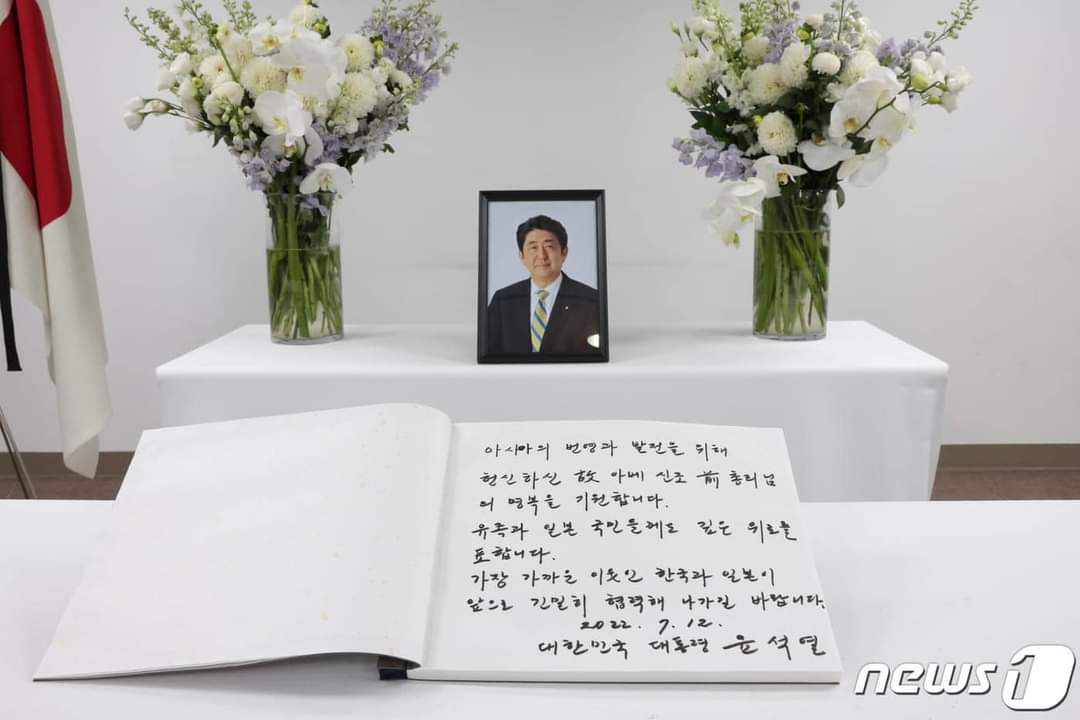 아시아의 번영과 발전을 위해
헌신하신 故 아베 신조 前 총리님
의 명복을 기원합니다.
유족과 일본 국민들께도 깊은 위로를
표합니다.
가장 가까운 이웃인 한국과 일본이
앞으로 긴밀히 협력해 나가길 바랍니다.
2022. 7. 12.
대한민국 대통령 윤석열
news1